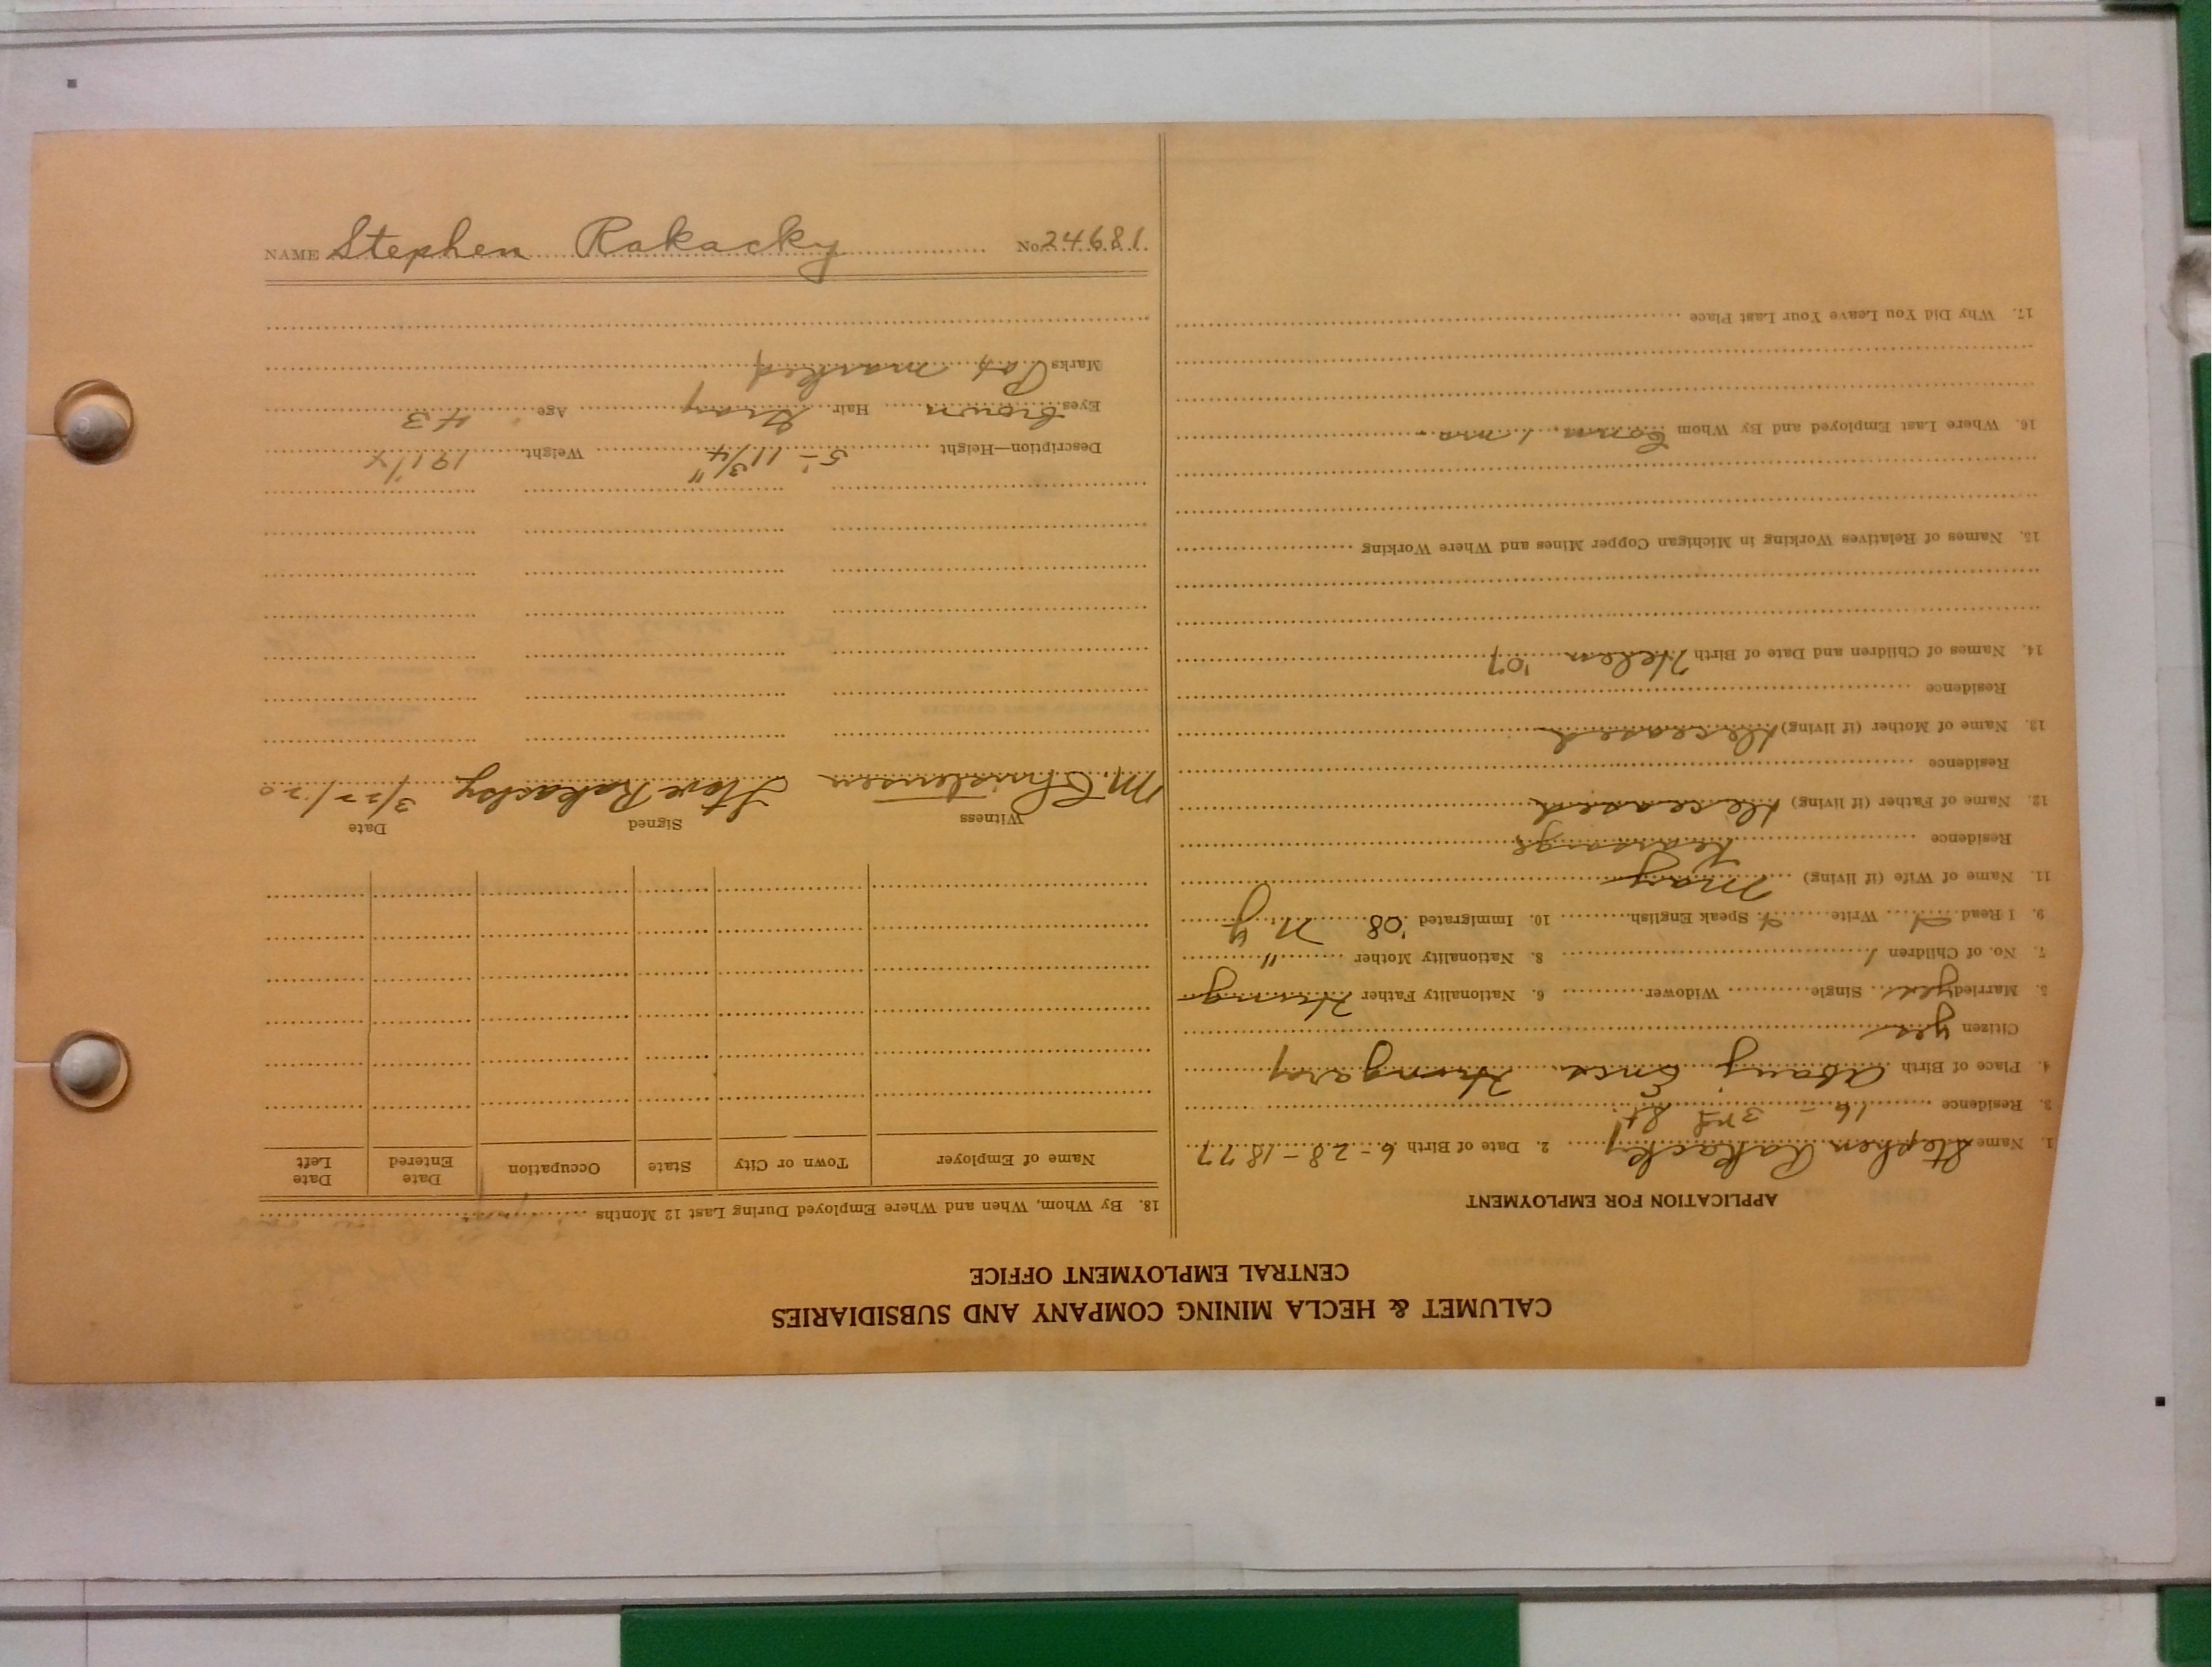 CALUMET & HECLA MINING COMPANY AND SUBSIDIARIES
CENTRAL EMPLOYMENT OFFICE
APPLICATION FOR EMPLOYMENT
1. Name Stephen Rakacky 2. Date of Birth 6-28-1877
3. Residence 16 - 3rd St.
4. Place of Birth Abauj Hungary
Citizen yes
5. Married yes Single Widower 6. Nationality Father Hung
7. No. of Children 1 8. Nationality Mother "
9. I Read Write Speak English 10. Immigrated '08 N Y
11. Name of Wife (if living) Mary
Residence Kearsarge
12. Name of Father (if living) Deceased
Residence
13. Name of Mother (if living) Deceased
Residence
14. Names of Children and Date of Birth Helen '07
15. Names of Relatives Working in Michigan Copper Mines and Where Working
16. Where Last Employed and By Whom 1 mo.
17. Why Did You Leave Your Last Place
18. By Whom, When and Where Employed During Last 12 Months
Name of Employer Town or City State Occupation Date Entered Date Left
Witness Signed Date
M. Christensen Steve Rakacky 3/22/20
Description—Height 5'-11 3/4" Weight 191 1/4
Eyes Brown Hair Gray Age 43
Marks marked
NAME Stephen Rakacky No. 24681